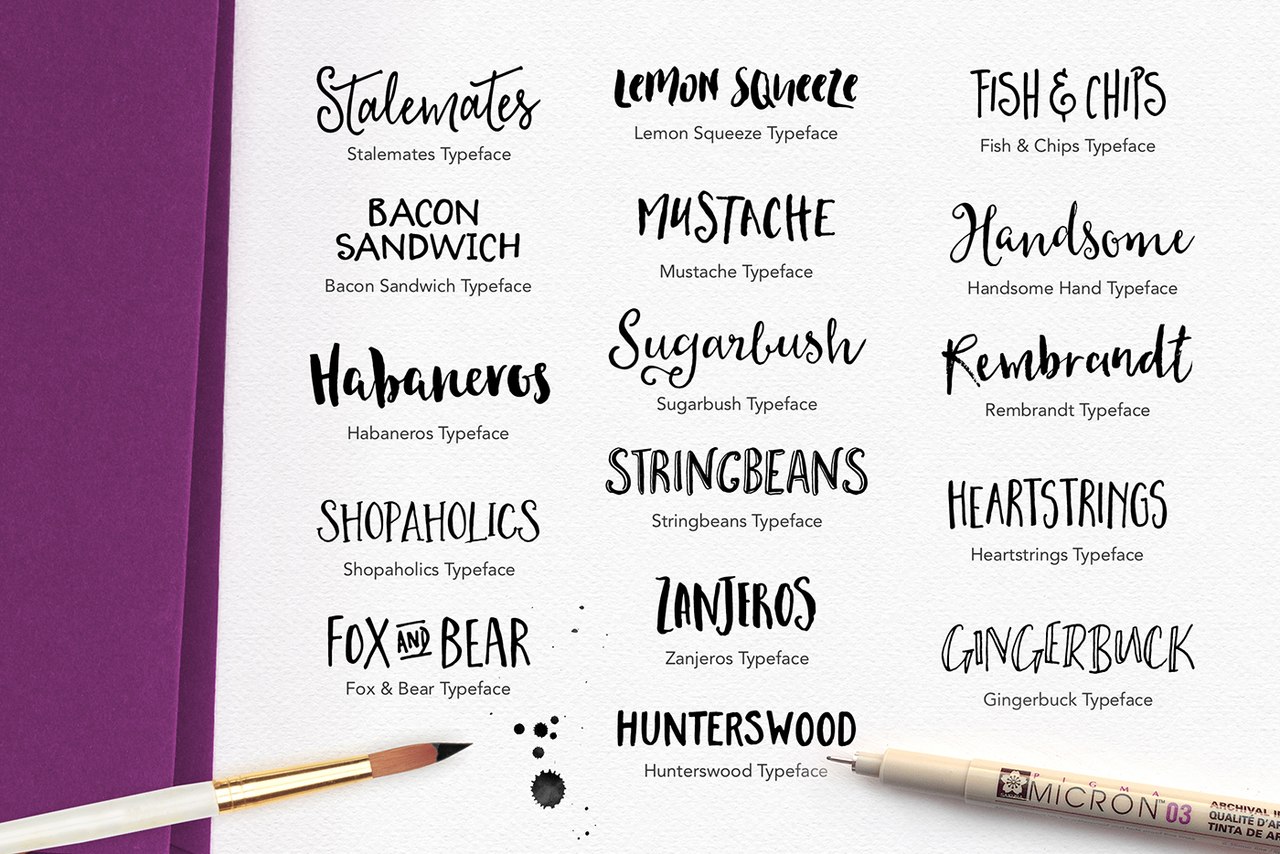 Stalemates
Stalemates Typeface
BACON
SANDWICH
Bacon Sandwich Typeface
Habaneros
Habaneros Typeface
SHOPAHOLICS
Shopaholics Typeface
FOX AND BEAR
Fox & Bear Typeface
LeMON SQueeZe
Lemon Squeeze Typeface
MUSTACHE
Mustache Typeface
Sugarbush
Sugarbush Typeface
STRINGBEANS
Stringbeans Typeface
ZANJEROS
Zanjeros Typeface
HUNTERSWOOD
Hunterswood Typeface
FISH & CHIPS
Fish & Chips Typeface
Handsome
Handsome Hand Typeface
Rembrandt
Rembrandt Typeface
HEARTSTRINGS
Heartstrings Typeface
GINGERBUCK
Gingerbuck Typeface
PIGMA
MICRON™ 03
ARCHIVAL
QUALITÉ D'AR
TINTA DE AR